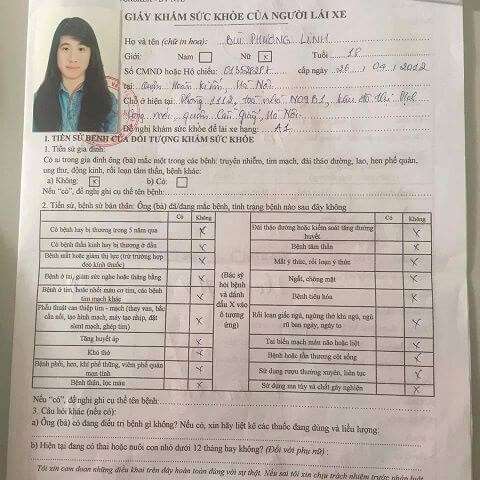 GIẤY KHÁM SỨC KHỎE CỦA NGƯỜI LÁI XE
Họ và tên (chữ in hoa): BÙI PHƯƠNG LINH
Giới: Nam Nữ x Tuổi 18
Số CMND hoặc Hộ chiếu: cấp ngày 26 / 04 / 2012
tại Hà Nội
Chỗ ở hiện tại: Phòng 1112, toà nhà N09B1, khu đô thị
quận Cầu Giấy, Hà Nội
Đề nghị khám sức khỏe để lái xe hạng: A1
I. TIỀN SỬ BỆNH CỦA ĐỐI TƯỢNG KHÁM SỨC KHỎE
1. Tiền sử gia đình:
Có ai trong gia đình ông (bà) mắc một trong các bệnh: truyền nhiễm, tim mạch, đái tháo đường, lao, hen phế quản,
ung thư, động kinh, rối loạn tâm thần, bệnh khác:
a) Không: x b) Có:
Nếu "có", đề nghị ghi cụ thể tên bệnh:
2. Tiền sử, bệnh sử bản thân: Ông (bà) đã/đang mắc bệnh, tình trạng bệnh nào sau đây không
Có Không
Có bệnh hay bị thương trong 5 năm qua x
Có bệnh thần kinh hay bị thương ở đầu x
Bệnh mắt hoặc giảm thị lực (trừ trường hợp đeo kính thuốc) x
Bệnh ở tai, giảm sức nghe hoặc thăng bằng x
Bệnh ở tim, hoặc nhồi máu cơ tim, các bệnh tim mạch khác x
Phẫu thuật can thiệp tim - mạch (thay van, bắc cầu nối, tạo hình mạch, máy tạo nhịp, đặt slent mạch, ghép tim) x
Tăng huyết áp x
Khó thở x
Bệnh phổi, hen, khí phế thũng, viêm phế quản mạn tính x
Bệnh thận, lọc máu x
(Bác sỹ
hỏi bệnh
và đánh
dấu X vào
ô tương
ứng)
Có Không
Đái tháo đường hoặc kiểm soát tăng đường huyết x
Bệnh tâm thần x
Mất ý thức, rối loạn ý thức x
Ngất, chóng mặt x
Bệnh tiêu hóa x
Rối loạn giấc ngủ, ngừng thở khi ngủ, ngủ rũ ban ngày, ngáy to x
Tai biến mạch máu não hoặc liệt x
Bệnh hoặc tổn thương cột sống x
Sử dụng rượu thường xuyên, liên tục x
Sử dụng ma túy và chất gây nghiện x
Nếu "có", đề nghị ghi cụ thể tên bệnh:
3. Câu hỏi khác (nếu có):
a) Ông (bà) có đang điều trị bệnh gì không? Nếu có, xin hãy liệt kê các thuốc đang dùng và liều lượng:
b) Hiện tại đang có thai hoặc nuôi con nhỏ dưới 12 tháng hay không? (Đối với phụ nữ):
Tôi xin cam đoan những điều khai trên đây hoàn toàn đúng với sự thật. Nếu sai tôi xin chịu trách nhiệm trước pháp luật